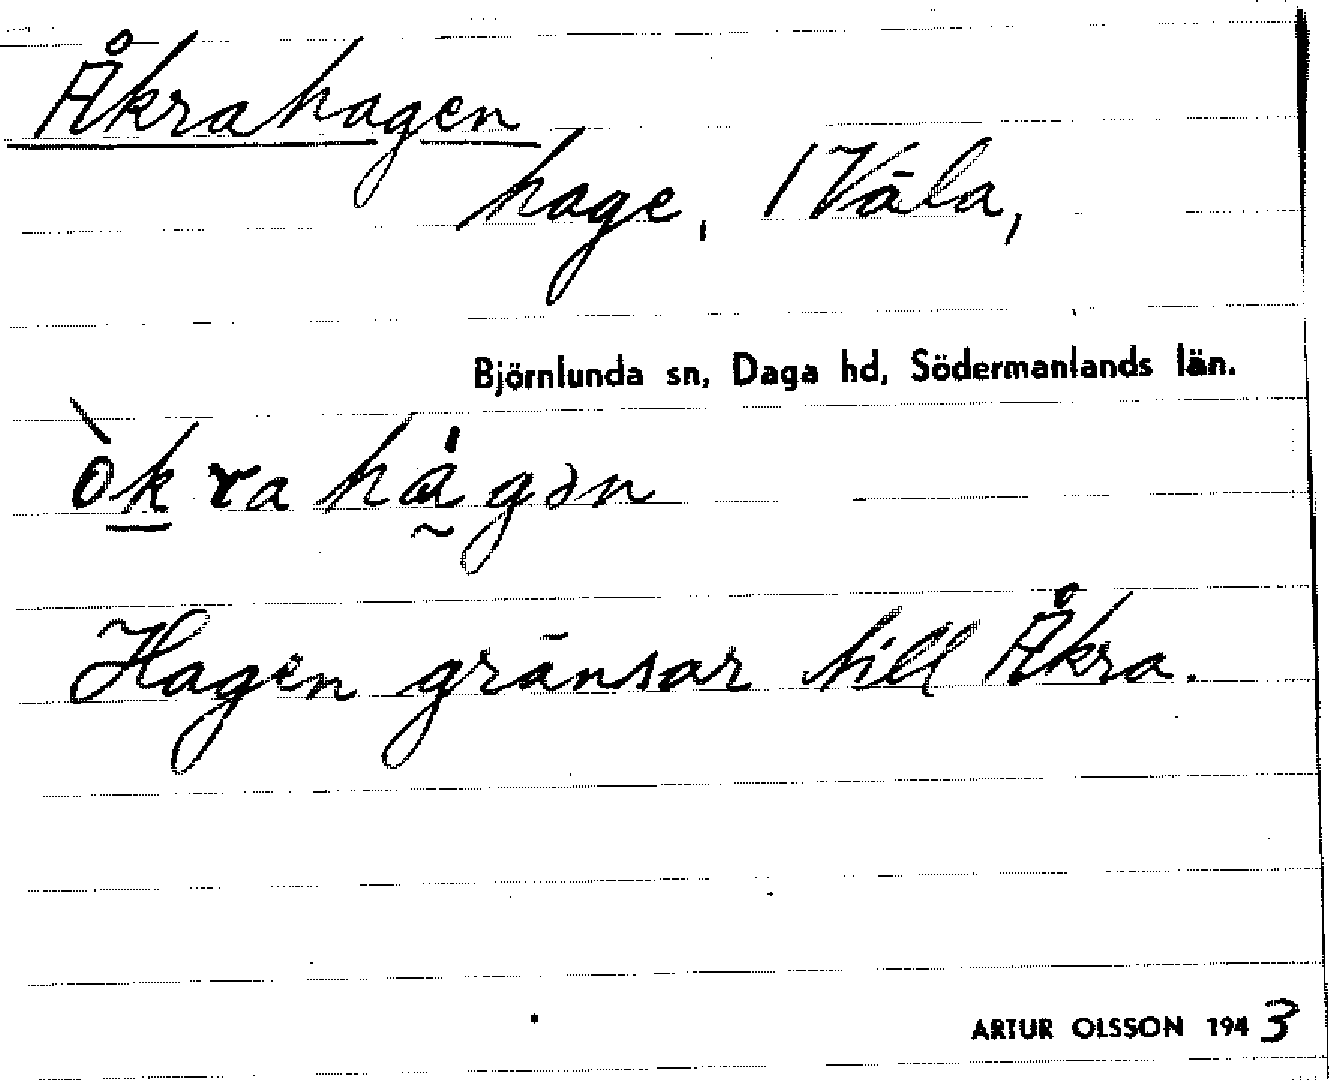 Åkrahagen
hage, / Väla,
Björnlunda sn, Daga hd, Södermanlands län.
òkra hågən
Hagen gränsar till Åkra.
ARTUR OLSSON 1943